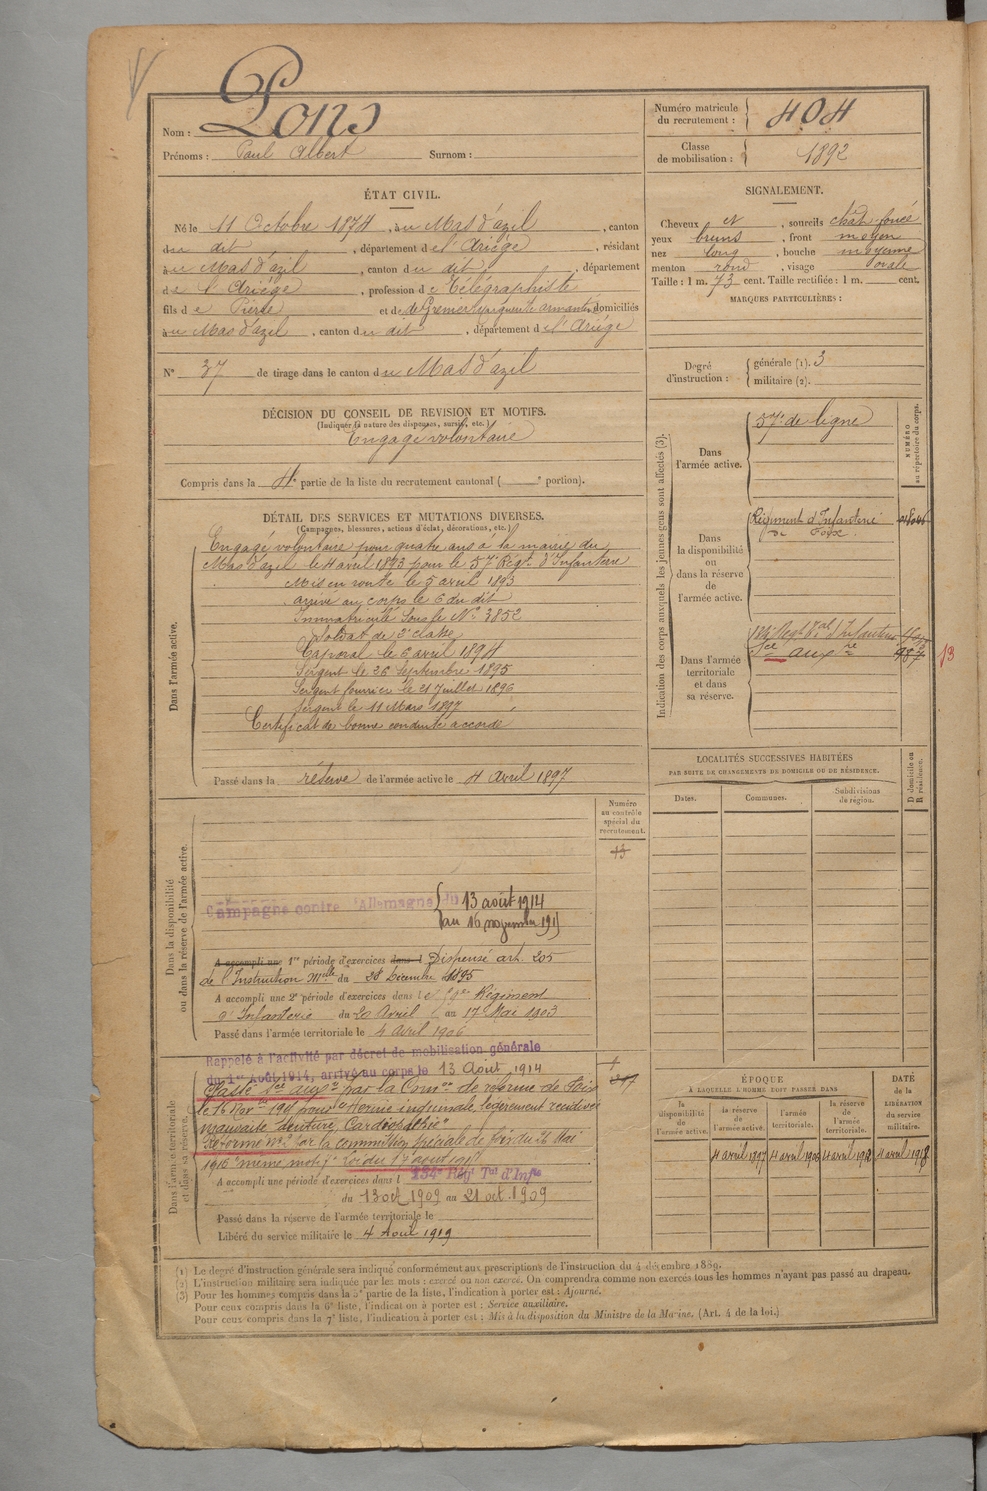 Nom : Pons
Prénoms : Paul Albert Surnom :
Numéro matricule du recrutement : 404
Classe de mobilisation : 1892
ÉTAT CIVIL.
Né le 11 Octobre 1874, à u Mas d'azil, canton
du dit, département de l'Ariège, résidant
à u Mas d'azil, canton du dit, département
de l'Ariège, profession de Télégraphiste
fils de Pierre et de de Gremier Marguerite armantine domiciliés
à u Mas d'azil, canton du dit, département de l'Ariège
N° 37 de tirage dans le canton du Mas d'azil
SIGNALEMENT.
Cheveux et, sourcils chât. foncé
yeux bruns, front moyen
nez long, bouche moyenne
menton rond, visage ovale
Taille : 1 m. 73 cent. Taille rectifiée : 1 m. cent.
MARQUES PARTICULIÈRES :
Degré d'instruction : générale (1). 3
militaire (2).
DÉCISION DU CONSEIL DE REVISION ET MOTIFS.
(Indiquer la nature des dispenses, sursis, etc.)
Engagé volontaire
Compris dans la 4e partie de la liste du recrutement cantonal ( e portion).
DÉTAIL DES SERVICES ET MUTATIONS DIVERSES.
(Campagnes, blessures, actions d'éclat, décorations, etc.)
Dans l'armée active.
Engagé volontaire pour quatre ans à la mairie du
Mas d'azil le 4 avril 1893 pour le 57e Régt d'Infanterie
Mis en route le 5 avril 1893
arrivé au corps le 6 du dit
Immatriculé sous le N° 3852
Soldat de 2e classe
Caporal le 6 avril 1894
Sergent le 26 Septembre 1895
Sergent fourrier le 21 Juillet 1896
Sergent le 11 Mars 1897
Certificat de bonne conduite accordé
Passé dans la réserve de l'armée active le 4 Avril 1897
Indication des corps auxquels les jeunes gens sont affectés (3).
NUMÉRO au répertoire du corps.
Dans l'armée active.
57e de ligne
Dans la disponibilité ou dans la réserve de l'armée active.
Régiment d'Infanterie
de Foix.
Dans l'armée territoriale et dans sa réserve.
134 Regt Tal d'Infanterie
Sce auxre
13
LOCALITÉS SUCCESSIVES HABITÉES
PAR SUITE DE CHANGEMENTS DE DOMICILE OU DE RÉSIDENCE.
Dates. Communes. Subdivisions de région. D domicile ou R résidence.
Dans la disponibilité ou dans la réserve de l'armée active.
Numéro au contrôle spécial du recrutement.
13
Campagne contre l'Allemagne du 13 août 1914
au 16 novembre 1915
A accompli une 1re période d'exercices dans l Dispensé art. 205
de l'Instruction Mlle du 28 Décembre 1895
A accompli une 2e période d'exercices dans le 59e Régiment
d'Infanterie du 20 Avril au 17 Mai 1903
Passé dans l'armée territoriale le 4 Avril 1906
Dans l'armée territoriale et dans sa réserve.
Rappelé à l'activité par décret de mobilisation générale
du 1er Août 1914, arrivé au corps le 13 Août 1914
Passé Sce auxre par la Comon de réforme de Foix
le 16 Novbre 1915 pour "Hernie inguinale légèrement récidivée
mauvaise denture, Cardiopathie"
Réformé n° 2 par la commission spéciale de Foix du 26 Mai
1916 "même motif" Loi du 1er août 1917
A accompli une période d'exercices dans l 134e Régt Tal d'Infie
du 13 oct. 1909 au 21 oct. 1909
Passé dans la réserve de l'armée territoriale le
Libéré du service militaire le 4 Aout 1919
ÉPOQUE À LAQUELLE L'HOMME DOIT PASSER DANS
la disponibilité de l'armée active. la réserve de l'armée active. l'armée territoriale. la réserve de l'armée territoriale.
DATE de la LIBÉRATION du service militaire.
4 avril 1897 4 avril 1906 4 avril 1912 4 avril 1918
(1) Le degré d'instruction générale sera indiqué conformément aux prescriptions de l'instruction du 4 décembre 1889.
(2) L'instruction militaire sera indiquée par les mots : exercé ou non exercé. On comprendra comme non exercés tous les hommes n'ayant pas passé au drapeau.
(3) Pour les hommes compris dans la 5e partie de la liste, l'indication à porter est : Ajourné.
Pour ceux compris dans la 6e liste, l'indication à porter est : Service auxiliaire.
Pour ceux compris dans la 7e liste, l'indication à porter est : Mis à la disposition du Ministre de la Marine. (Art. 4 de la loi.)